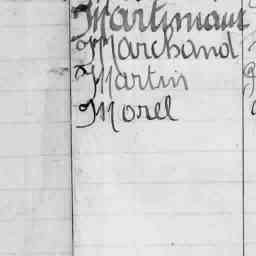 Martinaut
Marchand
Martin
Morel